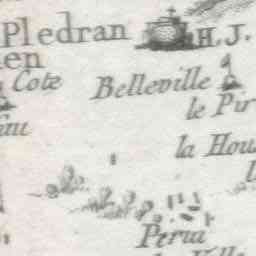 Pledran H. J.
en
Cote Belleville
le Pir
la Hou
Peria